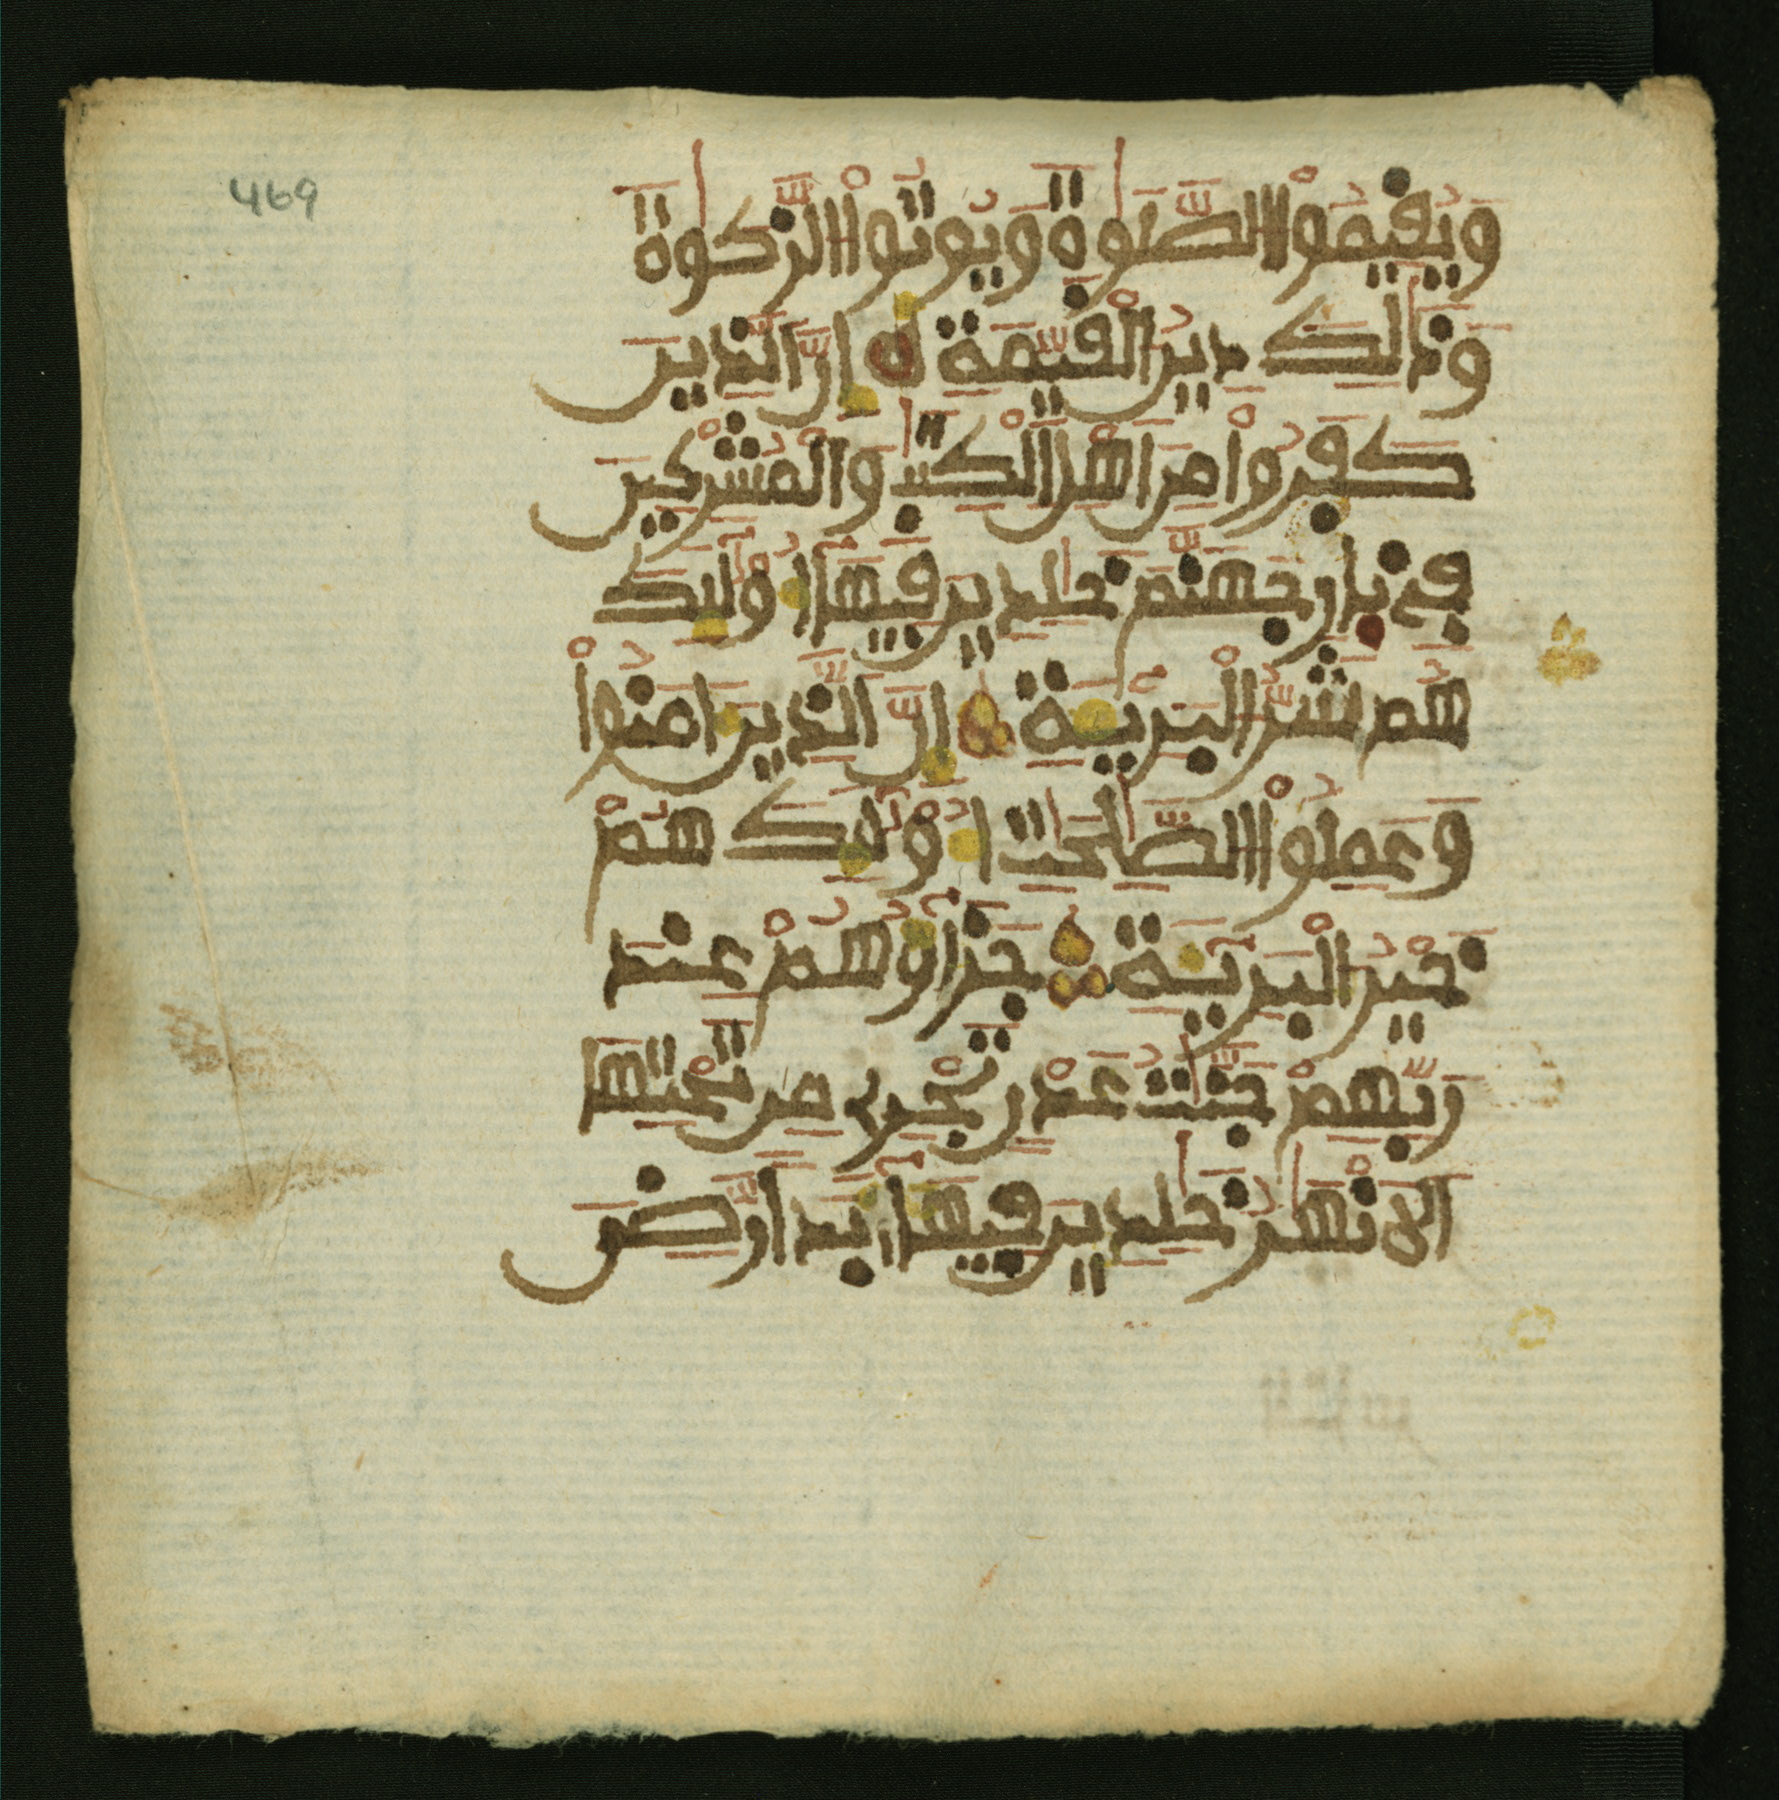 469
وَيُقِيمُواْ الصَّلَوٰةَ وَيُوتُواْ الزَّكَوٰةَ
وَذَٰلِكَ دِينُ الْقَيِّمَةِ إِنَّ الذِينَ
كَفَرُواْ مِنَ اهْلِ الْكِتَٰبِ وَالْمُشْرِكِينَ
فِے نارِ جَهَنَّمَ خَٰلِدِينَ فِيهَآ أُوْلَٰٓئِكَ
هُمْ شَرُّ الْبَرِيٓـَٔةِ إِنَّ الذِينَ ءَامَنُواْ
وَعَمِلُواْ الصَّٰلِحَٰتِ أُوْلَٰٓئِكَ هُمْ
خَيْرُ الْبَرِيٓـَٔةِ جَزَآؤُهُمْ عِندَ
رَبِّهِمْ جَنَّٰتُ عَدْنٍ تَجْرِے مِن تَحْتِهَا
الَانْهَٰرُ خَٰلِدِينَ فِيهَآ أَبَداً رَّضِيَ